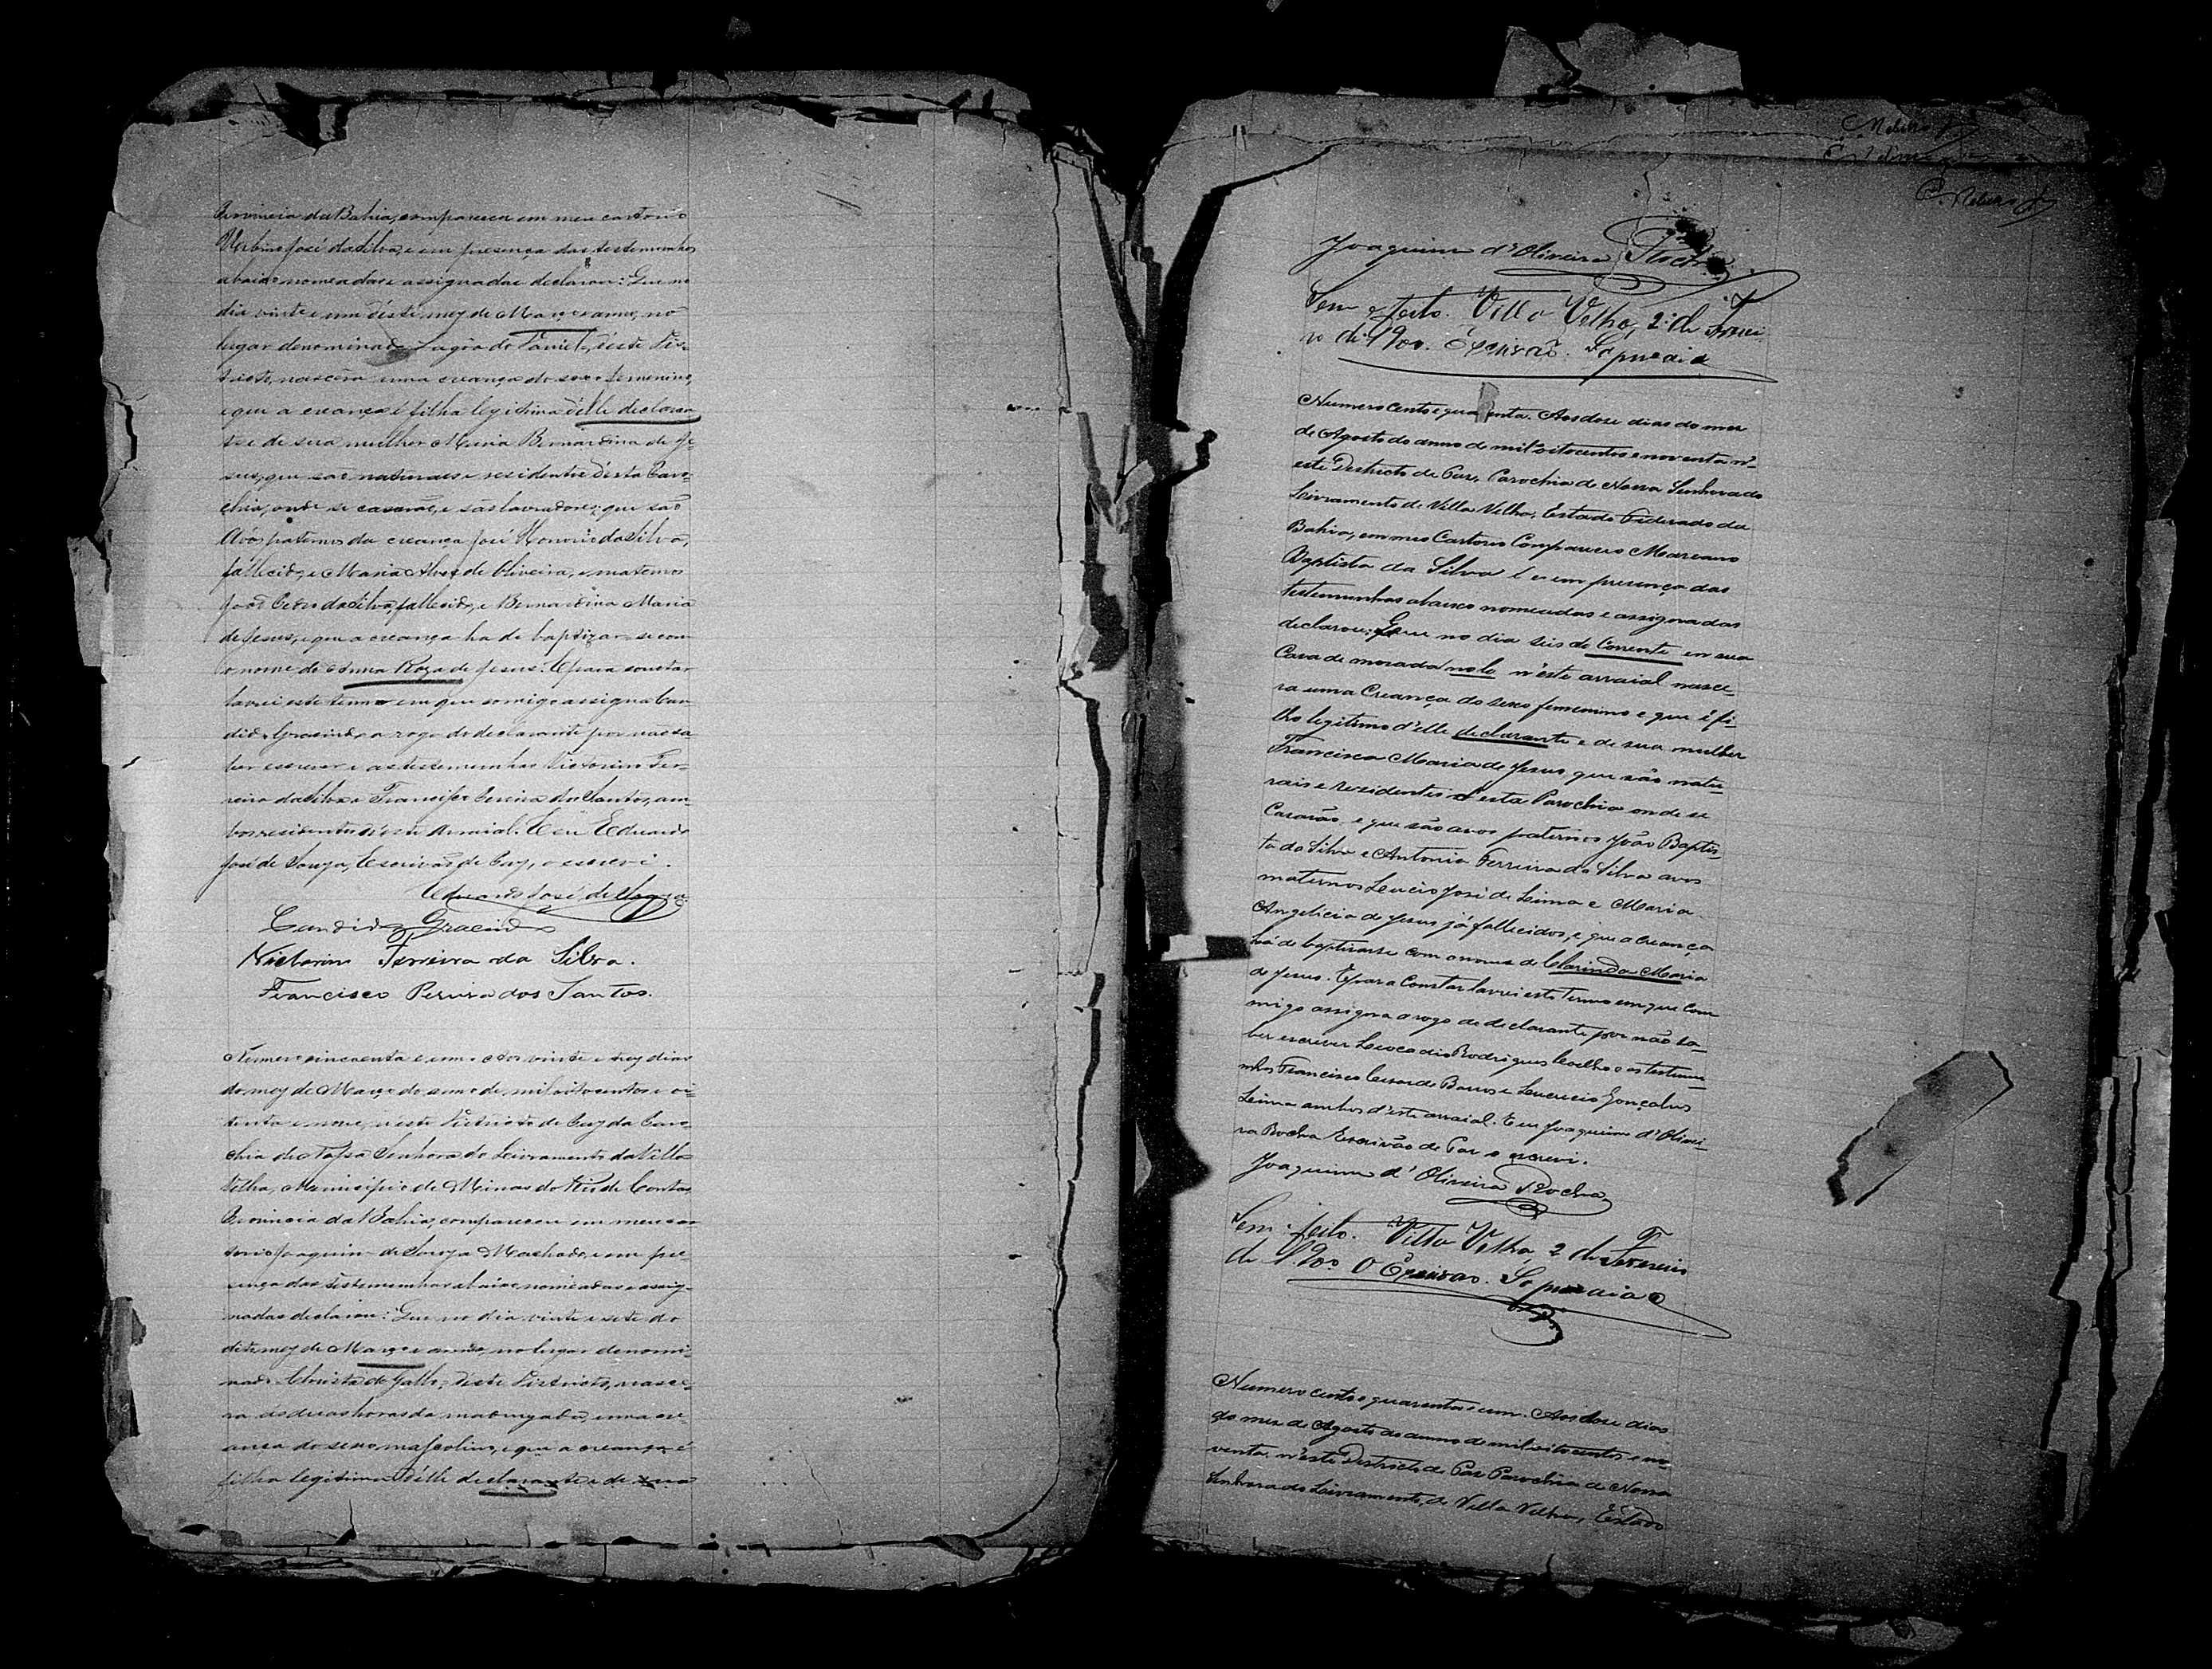 Provincia da Bahia, compareceu em meu cartorio
Urbino José da Silva, e em presença das testemunhas
abaixo nomeadas e assignadas declarou: Que no
dia vinte e um déste mez de Março e anno, no
lugar denominado Lagôa do Daniel, deste Dis-
tricto, nascêra uma creança do sexo femenino,
e que a creança é filha legitima d'elle declaran-
te e de sua mulher Maria Bernardina de Je-
sus, que são naturaes e residentes désta Paro-
chia, onde se casarão, e são lavradores; que são
Avós paternos da creança José Honorio da Silva,
fallecido, e Maria Alves de Oliveira, e maternos
João Pedro da Silva, fallecido, e Bernardina Maria
de Jesus, e que a creança ha de baptizar-se com
o nome de Anna Roza de Jesus. E para constar
lavrei este termo em que comigo assigna Can-
dido Gracindo a rogo do declarante por não sa-
ber escrever e as testemunhas Victorino Fer-
reira da Silva e Francisco Pereira dos Santos, am-
bos residentes n'este Arraial. Eu Eduardo
José de Souza, Escrivão de Paz, o escrevi.
Eduardo José de Souza
Candido Gracindo
Victorino Ferreira da Silva.
Francisco Pereira dos Santos.
Numero cincoenta e um. Aos vinte e seis dias
do mez de Março do anno de mil oitocentos e oi-
tenta e nove, n'este Districto de Paz da Paro-
chia de Nossa Senhora do Livramento da Villa
Velha, Municipio de Minas do Rio de Contas
Provincia da Bahia, compareceu em meu car-
torio Joaquim de Souza Machado, e em pre-
sença das testemunhas abaixo nomeadas e assig-
nadas declarou: Que no dia vinte e sete do
dito mez de Março e anno, no lugar denomi-
nado Christa do Gallo, deste Districto, nasce-
ra ás duas horas da madrugada, uma cre-
ança do sexo masculino, e que a creança é
filha legitima d'elle declarante e de sua
C. Ribeiro
Joaquim d'Oliveira Rocha
Sem efeito. Villa Velha, 2 de Feverei-
ro de 1900. O Escrivão.
Numero cento e quarenta. Aos dose dias do mez
de Agosto do anno de mil oitocentos e noventa n'-
este Destricto de Paz, Parochia de Nossa Senhora do
Livramento de Villa Velha, Estado Federado da
Bahia, em meu Cartorio Compareceu Marcano
Baptista da Silva e em presença das
testemunhas abaixo nomeadas e assignadas
declarou: Que no dia seis do Corrente em sua
Casa de morada n'este arraial nasce-
ra uma Creança do sexo femenino e que é fi-
lha legitima d'elle declarante e de sua mulher
Francisca Maria de Jesus que são natu-
raes e residentes n'esta Parochia onde se
Casarão e que são avos paternos João Baptis-
ta da Silva e Antonia Ferreira da Silva avos
maternos Leucio José de Lima e Maria
Angelicia de Jesus já fallecidos, e que a creança
há de baptisarse com o nome de Clarinda Maria
de Jesus. E para Constar lavrei este Termo em que com-
migo assigna a rogo do declarante por não sa-
ber escrever Leocadio Rodrigues Coelho e as testemu-
nhas Francisco Cesar de Barros e Leucrecio Gonçalves
Leima ambos d'este arraial. Eu Joaquim d'Olivei-
ra Rocha Escrivão de Paz o escrevi.
Joaquim d'Oliveira Rocha
Sem efeito. Villa Velha, 2 de Fevereiro
de 1900 O Escrivão.
Numero cento e quarenta e um. Aos dose dias
do mez de Agosto do anno de mil oitocentos e no-
venta, n'este Destricto de Paz Parochia de Nossa
Senhora do Livramento de Villa Velha, Estado